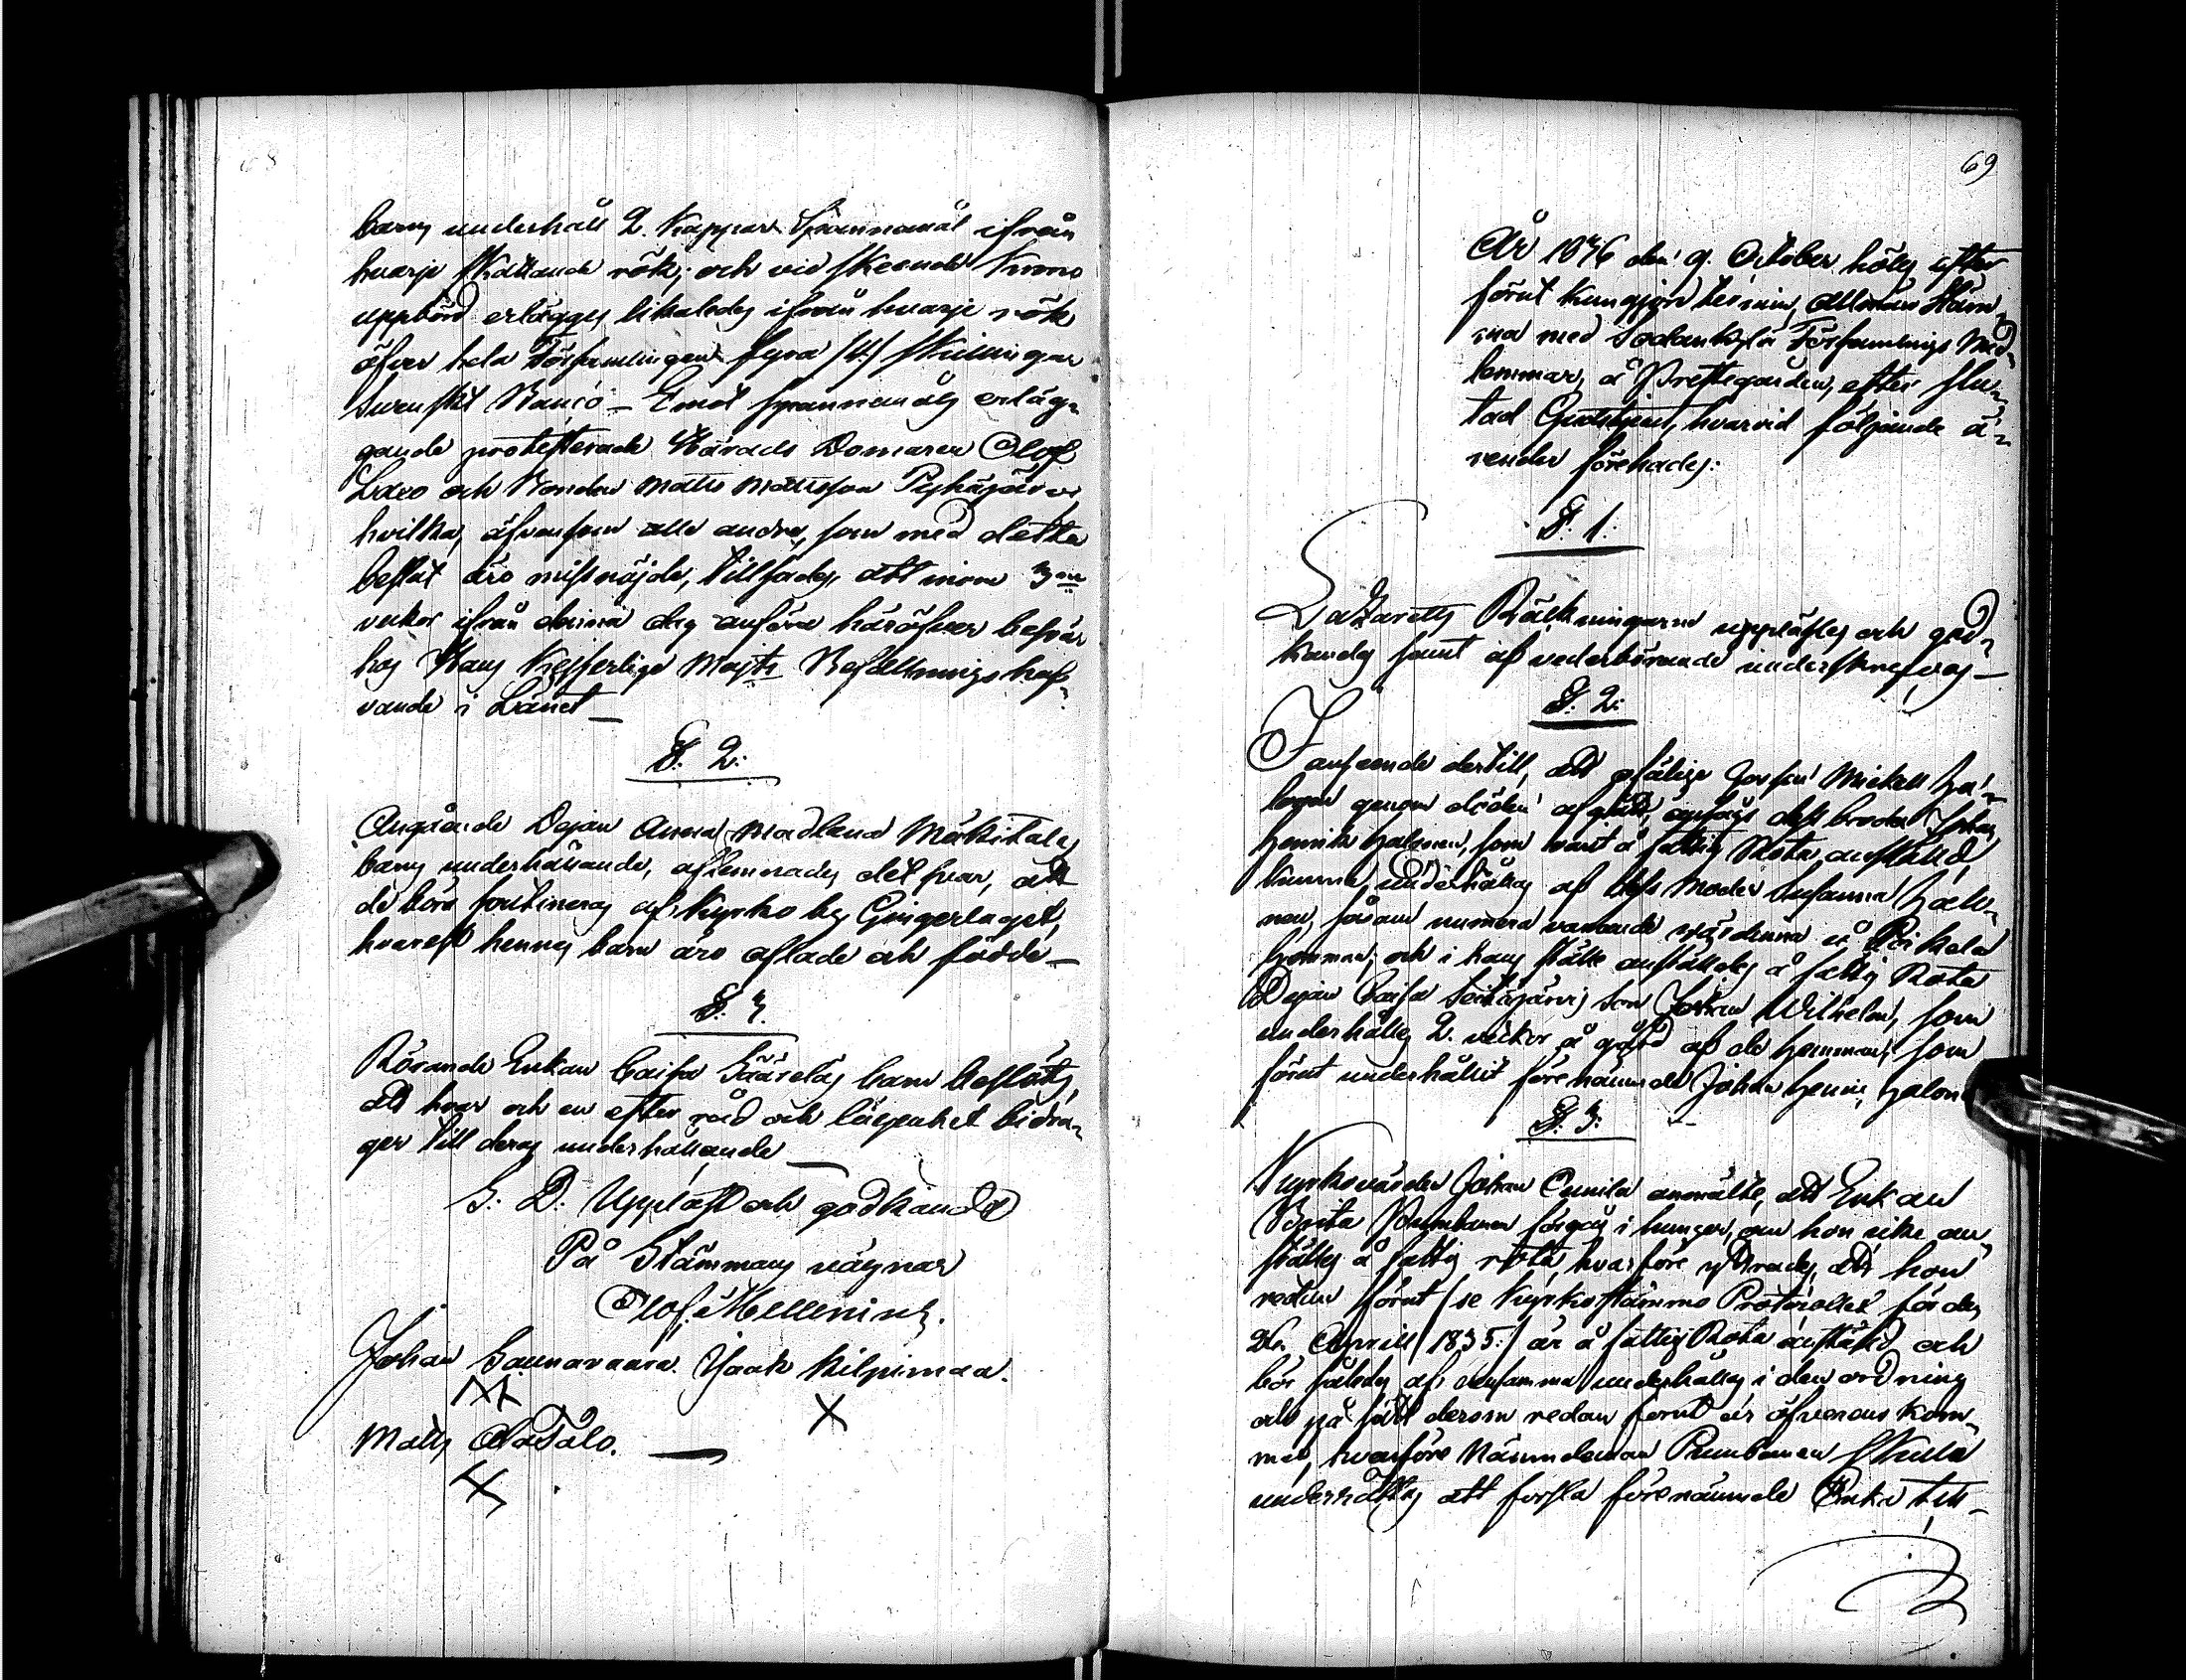 68
barns underhåll 2. Kappar Spannemål ifrån
hvarje skattande rök; och vid skeende Krono
uppbörd erlägges likaledes ifrån hvarje rök
öfver hela Församlingen fyra /4/ skillingar
Svenskt Banco – Emot Spannemåls erläg-
gande protesterade Härads Domaren Olof
och Bonden Matts Mattsson Pyhäjärvi
hvilka, äfvensom alla andre, som med detta
beslut äro missnöjde, tillsades, att inom 3ne
veckor ifrån denna dag anföra häröfver besvär
hos Hans Kejserliga Majts Befallningshaf-
vande i Länet –
§. 2:
Angående Pigan Anna Madlena Mäkitalos
barns underhållande, aflemnades det svar, att
de böra soutineras af Kyrko by Gingerlaget,
hvarest hennes barn äro aflade och födde –
§. 3.
Rörande Enkan Caisa barn beslöts,
att hvar och en efter råd och lägenhet bidra-
ger till deras underhållande –
S: D: Uppläst och godkändt
På Stämmans vägnar
Olof Mellenius.
Johan Saunavaara. Isaak Kilpimaa.
X X
Matts AlaTalo. –
X
69
År 1836 den 9. October höls efter
förut kungjord termin, Allmän Stäm-
ma med Sodankylä Församlings Med-
lemmar, å Prestegården, efter slu-
tad Gudstjenst, hvarvid följande ä-
render förehades:
§. 1:
Lazaretts Räkningarne upplästes och god-
kändes samt af vederbörande underskrefvos –
§. 2:
I anseende dertill, att Gossen Mickell Ha-
lonen genom döden afgått, dess broder Johan
Henrik Halonen, som varit å fattig Rota anställd,
kunna underhållas af dess Moder Susanna Halo-
nen, såsom numera varande värdinna å
Hemman; och i hans ställe anställdes å fattig Rota
Pigan Caisa son Johan Wilhelm, som
underhålles 2. veckor å gård af de Hemman, som
förut underhållit förenämnde Johan Henric Halon
§. 3:
Kyrkovärden Johan anmälte, att Enkan
Brita förgås i hunger, om hon icke an-
ställes å fattig rota, hvarföre yttrades, att hon
redan förut /se Kyrkostämmo Protocollet för den
26. Aprill 1835:/ är å fattig Rota anstäld och
bör således af densamma underhållas i den ordning
och på sätt derom redan förut är öfverens kom-
met, hvarföre Nämndeman skulle
underrättas att forsla förenämnde Enka till